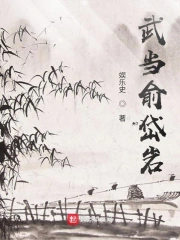 武当俞岱岩
娱乐史
著